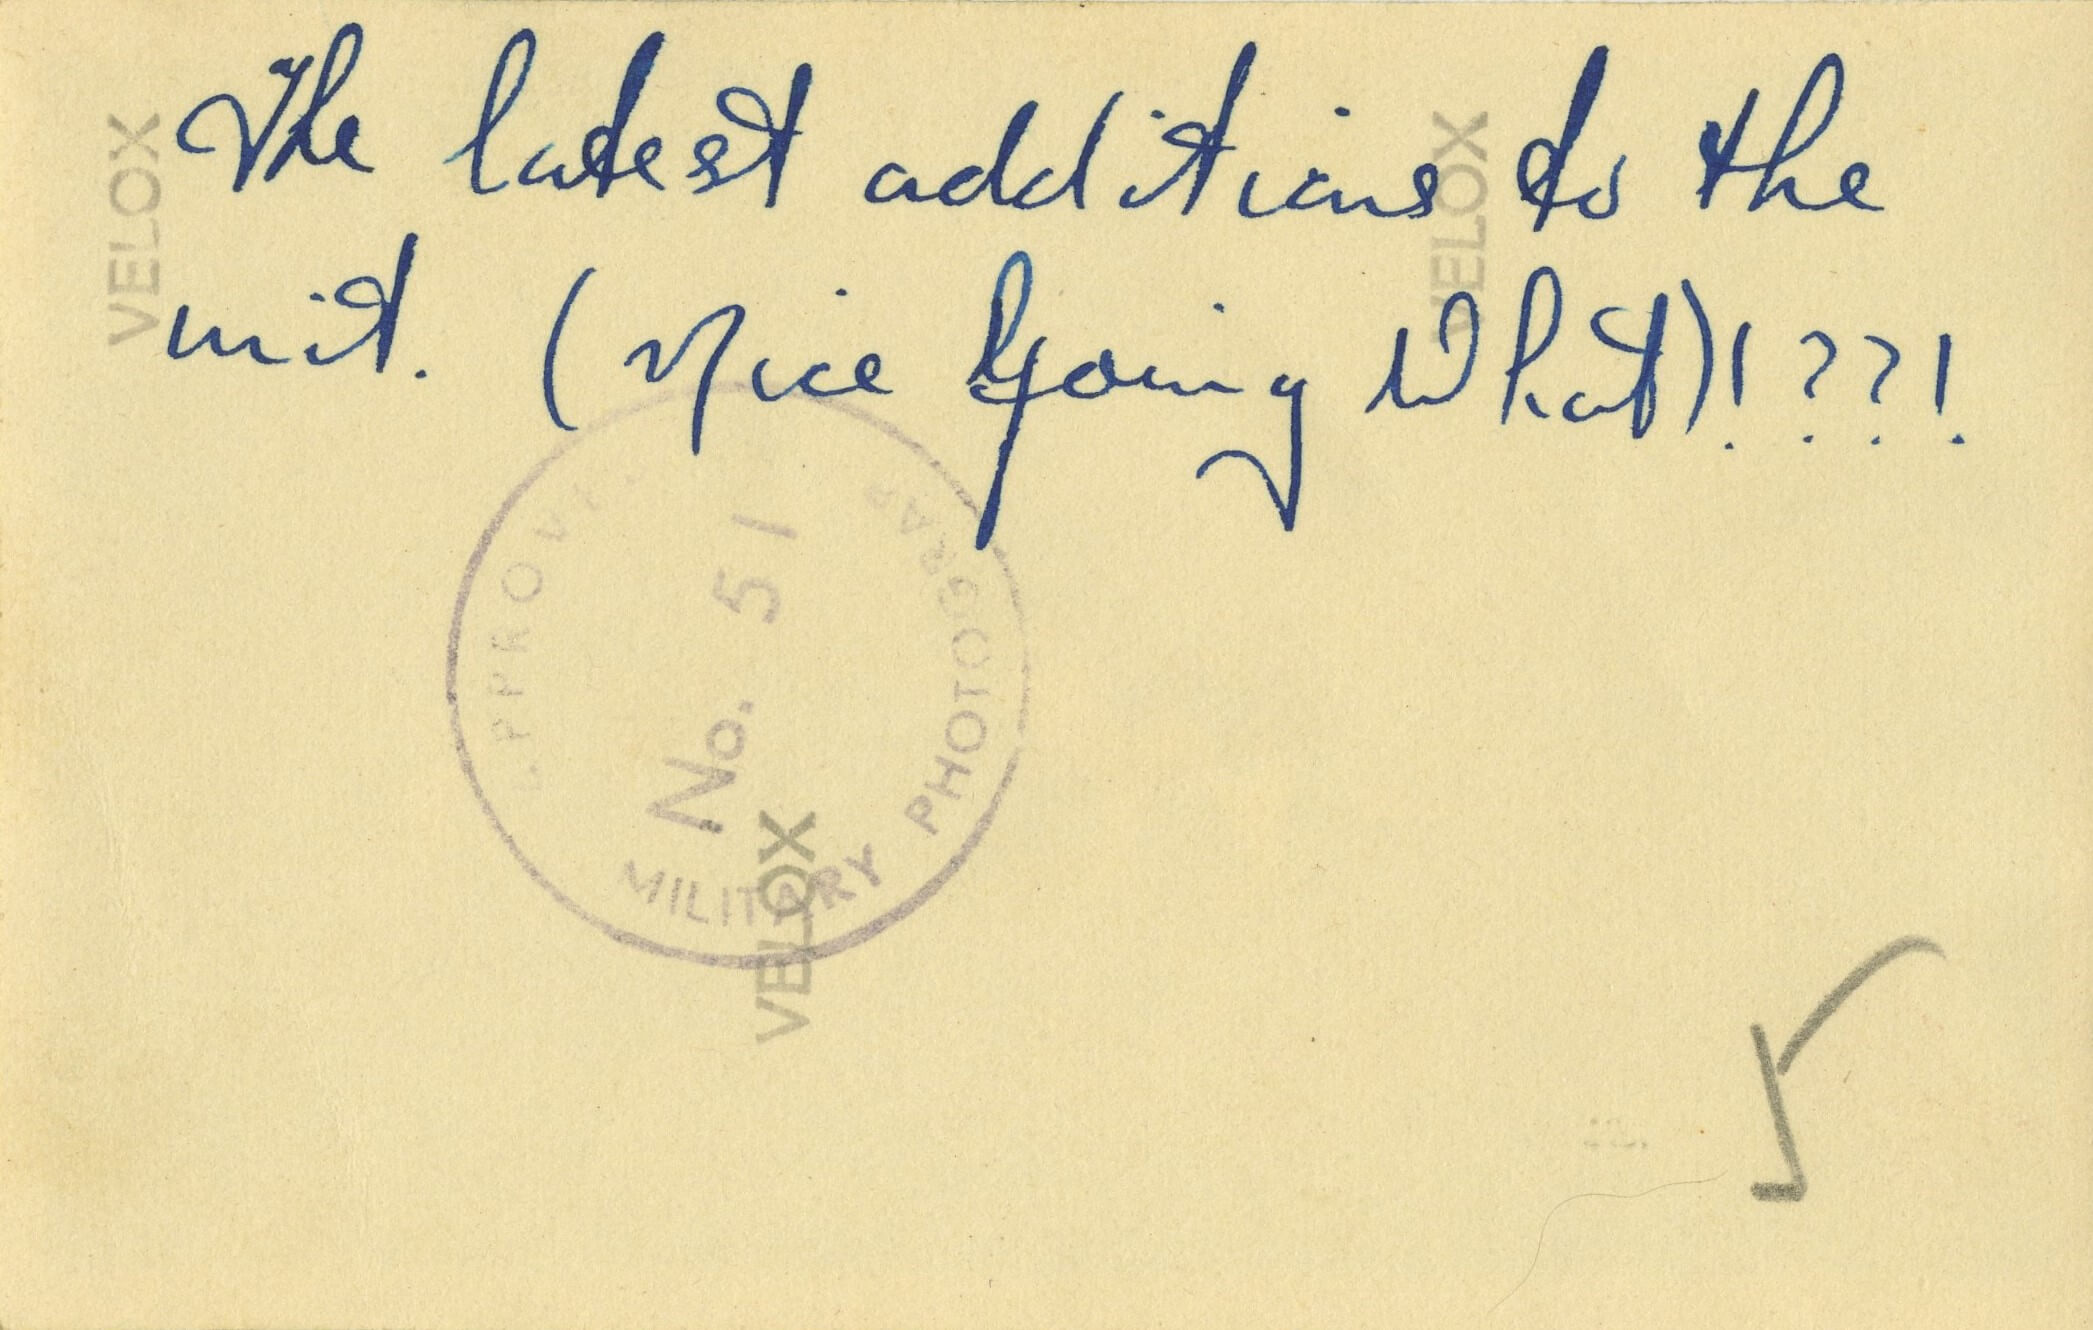 The latest additions to the
unit. (Nice Going What)!??!
VELOX
VELOX
No. 51
MILITARY
VELOX